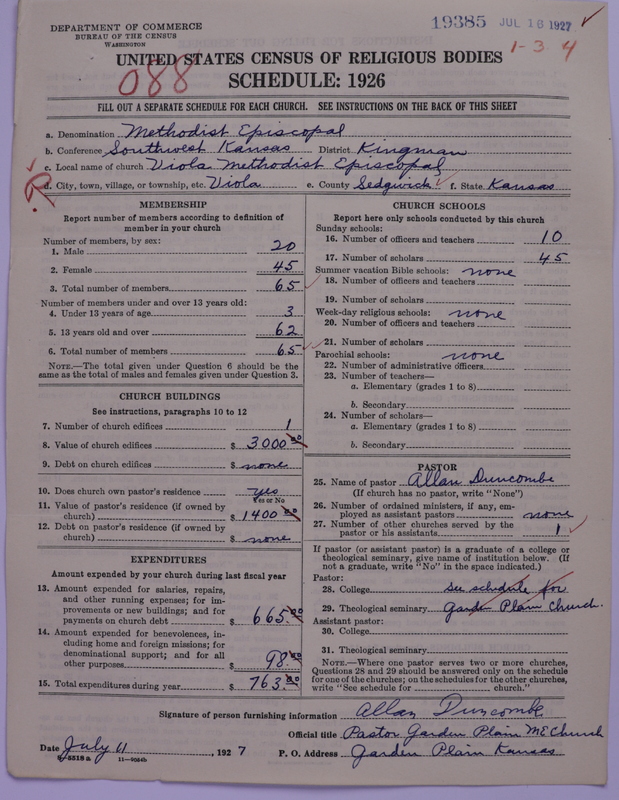 DEPARTMENT OF COMMERCE
BUREAU OF THE CENSUS
WASHINGTON
19385 JUL 16 1927
1-3 4
088
UNITED STATES CENSUS OF RELIGIOUS BODIES
SCHEDULE: 1926
FILL OUT A SEPARATE SCHEDULE FOR EACH CHURCH. SEE INSTRUCTIONS ON THE BACK OF THIS SHEET
a. Denomination Methodist Episcopal
b. Conference Southwest Kansas District Kingman
c. Local name of church Viola Methodist Episcopal
R
d. City, town, village, or township, etc. Viola e. County Sedgwick f. State Kansas
MEMBERSHIP
Report number of members according to definition of
member in your church
Number of members, by sex:
1. Male 20
2. Female 45
3. Total number of members 65
Number of members under and over 13 years old:
4. Under 13 years of age 3
5. 13 years old and over 62
6. Total number of members 65
NOTE.—The total given under Question 6 should be the
same as the total of males and females given under Question 3.
CHURCH BUILDINGS
See instructions, paragraphs 10 to 12
7. Number of church edifices 1
8. Value of church edifices $ 3000.00
9. Debt on church edifices $ none
10. Does church own pastor's residence yes
Yes or No
11. Value of pastor's residence (if owned by
church) $ 1400.00
12. Debt on pastor's residence (if owned by
church) $ none
EXPENDITURES
Amount expended by your church during last fiscal year
13. Amount expended for salaries, repairs,
and other running expenses; for im-
provements or new buildings; and for
payments on church debt $ 665.00
14. Amount expended for benevolences, in-
cluding home and foreign missions; for
denominational support; and for all
other purposes $ 98.00
15. Total expenditures during year $ 763.00
CHURCH SCHOOLS
Report here only schools conducted by this church
Sunday schools:
16. Number of officers and teachers 10
17. Number of scholars 45
Summer vacation Bible schools: none
18. Number of officers and teachers
19. Number of scholars
Week-day religious schools: none
20. Number of officers and teachers
21. Number of scholars
Parochial schools: none
22. Number of administrative officers
23. Number of teachers—
a. Elementary (grades 1 to 8)
b. Secondary
24. Number of scholars—
a. Elementary (grades 1 to 8)
b. Secondary
PASTOR
25. Name of pastor Allan Duncombe
(If church has no pastor, write "None")
26. Number of ordained ministers, if any, em-
ployed as assistant pastors none
27. Number of other churches served by the
pastor or his assistants 1
If pastor (or assistant pastor) is a graduate of a college or
theological seminary, give name of institution below. (If
not a graduate, write "No" in the space indicated.)
Pastor:
28. College See schedule for
29. Theological seminary Garden Plain Church.
Assistant pastor:
30. College
31. Theological seminary
NOTE.—Where one pastor serves two or more churches,
Questions 28 and 29 should be answered only on the schedule
for one of the churches; on the schedules for the other churches,
write "See schedule for church."
Signature of person furnishing information Allan Duncombe
Official title Pastor Garden Plain ME Church
Date July 11, 1927 P. O. Address Garden Plain Kansas
8-5518a 11-9054b